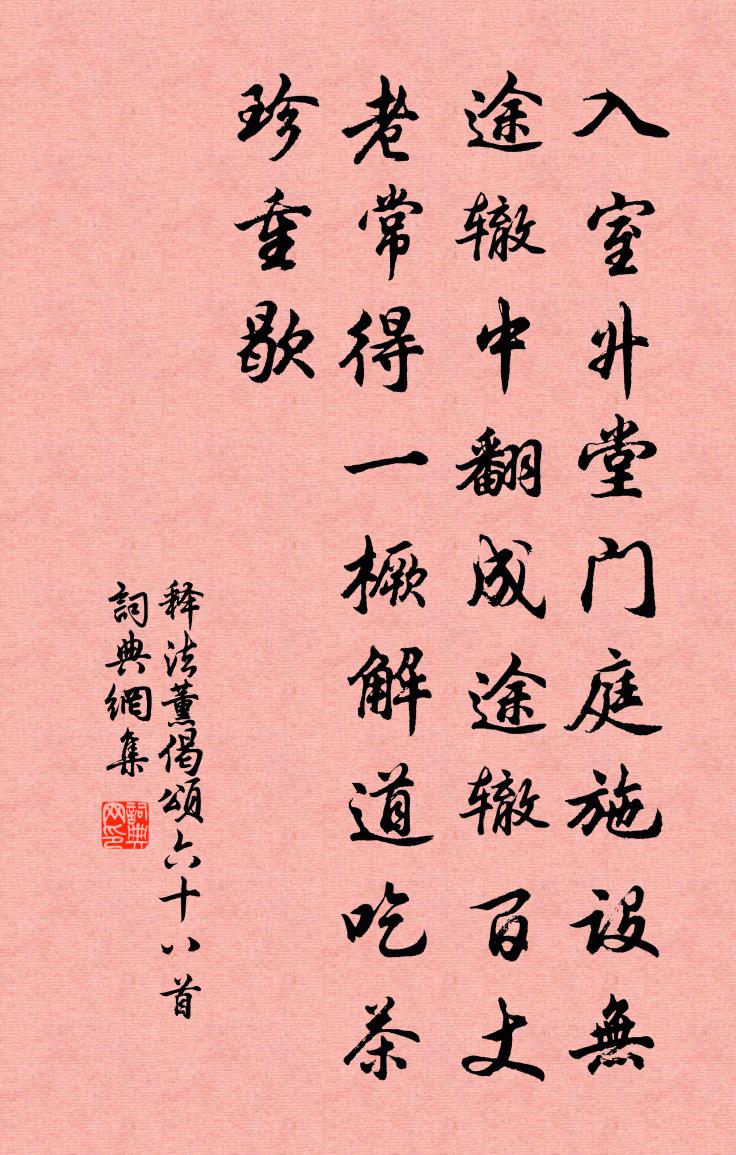 入室升堂门庭施設無
途辙中翻成途辙百丈
老常得一橛解道吃茶
珍重歇
释法薰偈頌六十八首
詞典網集
詞典网印